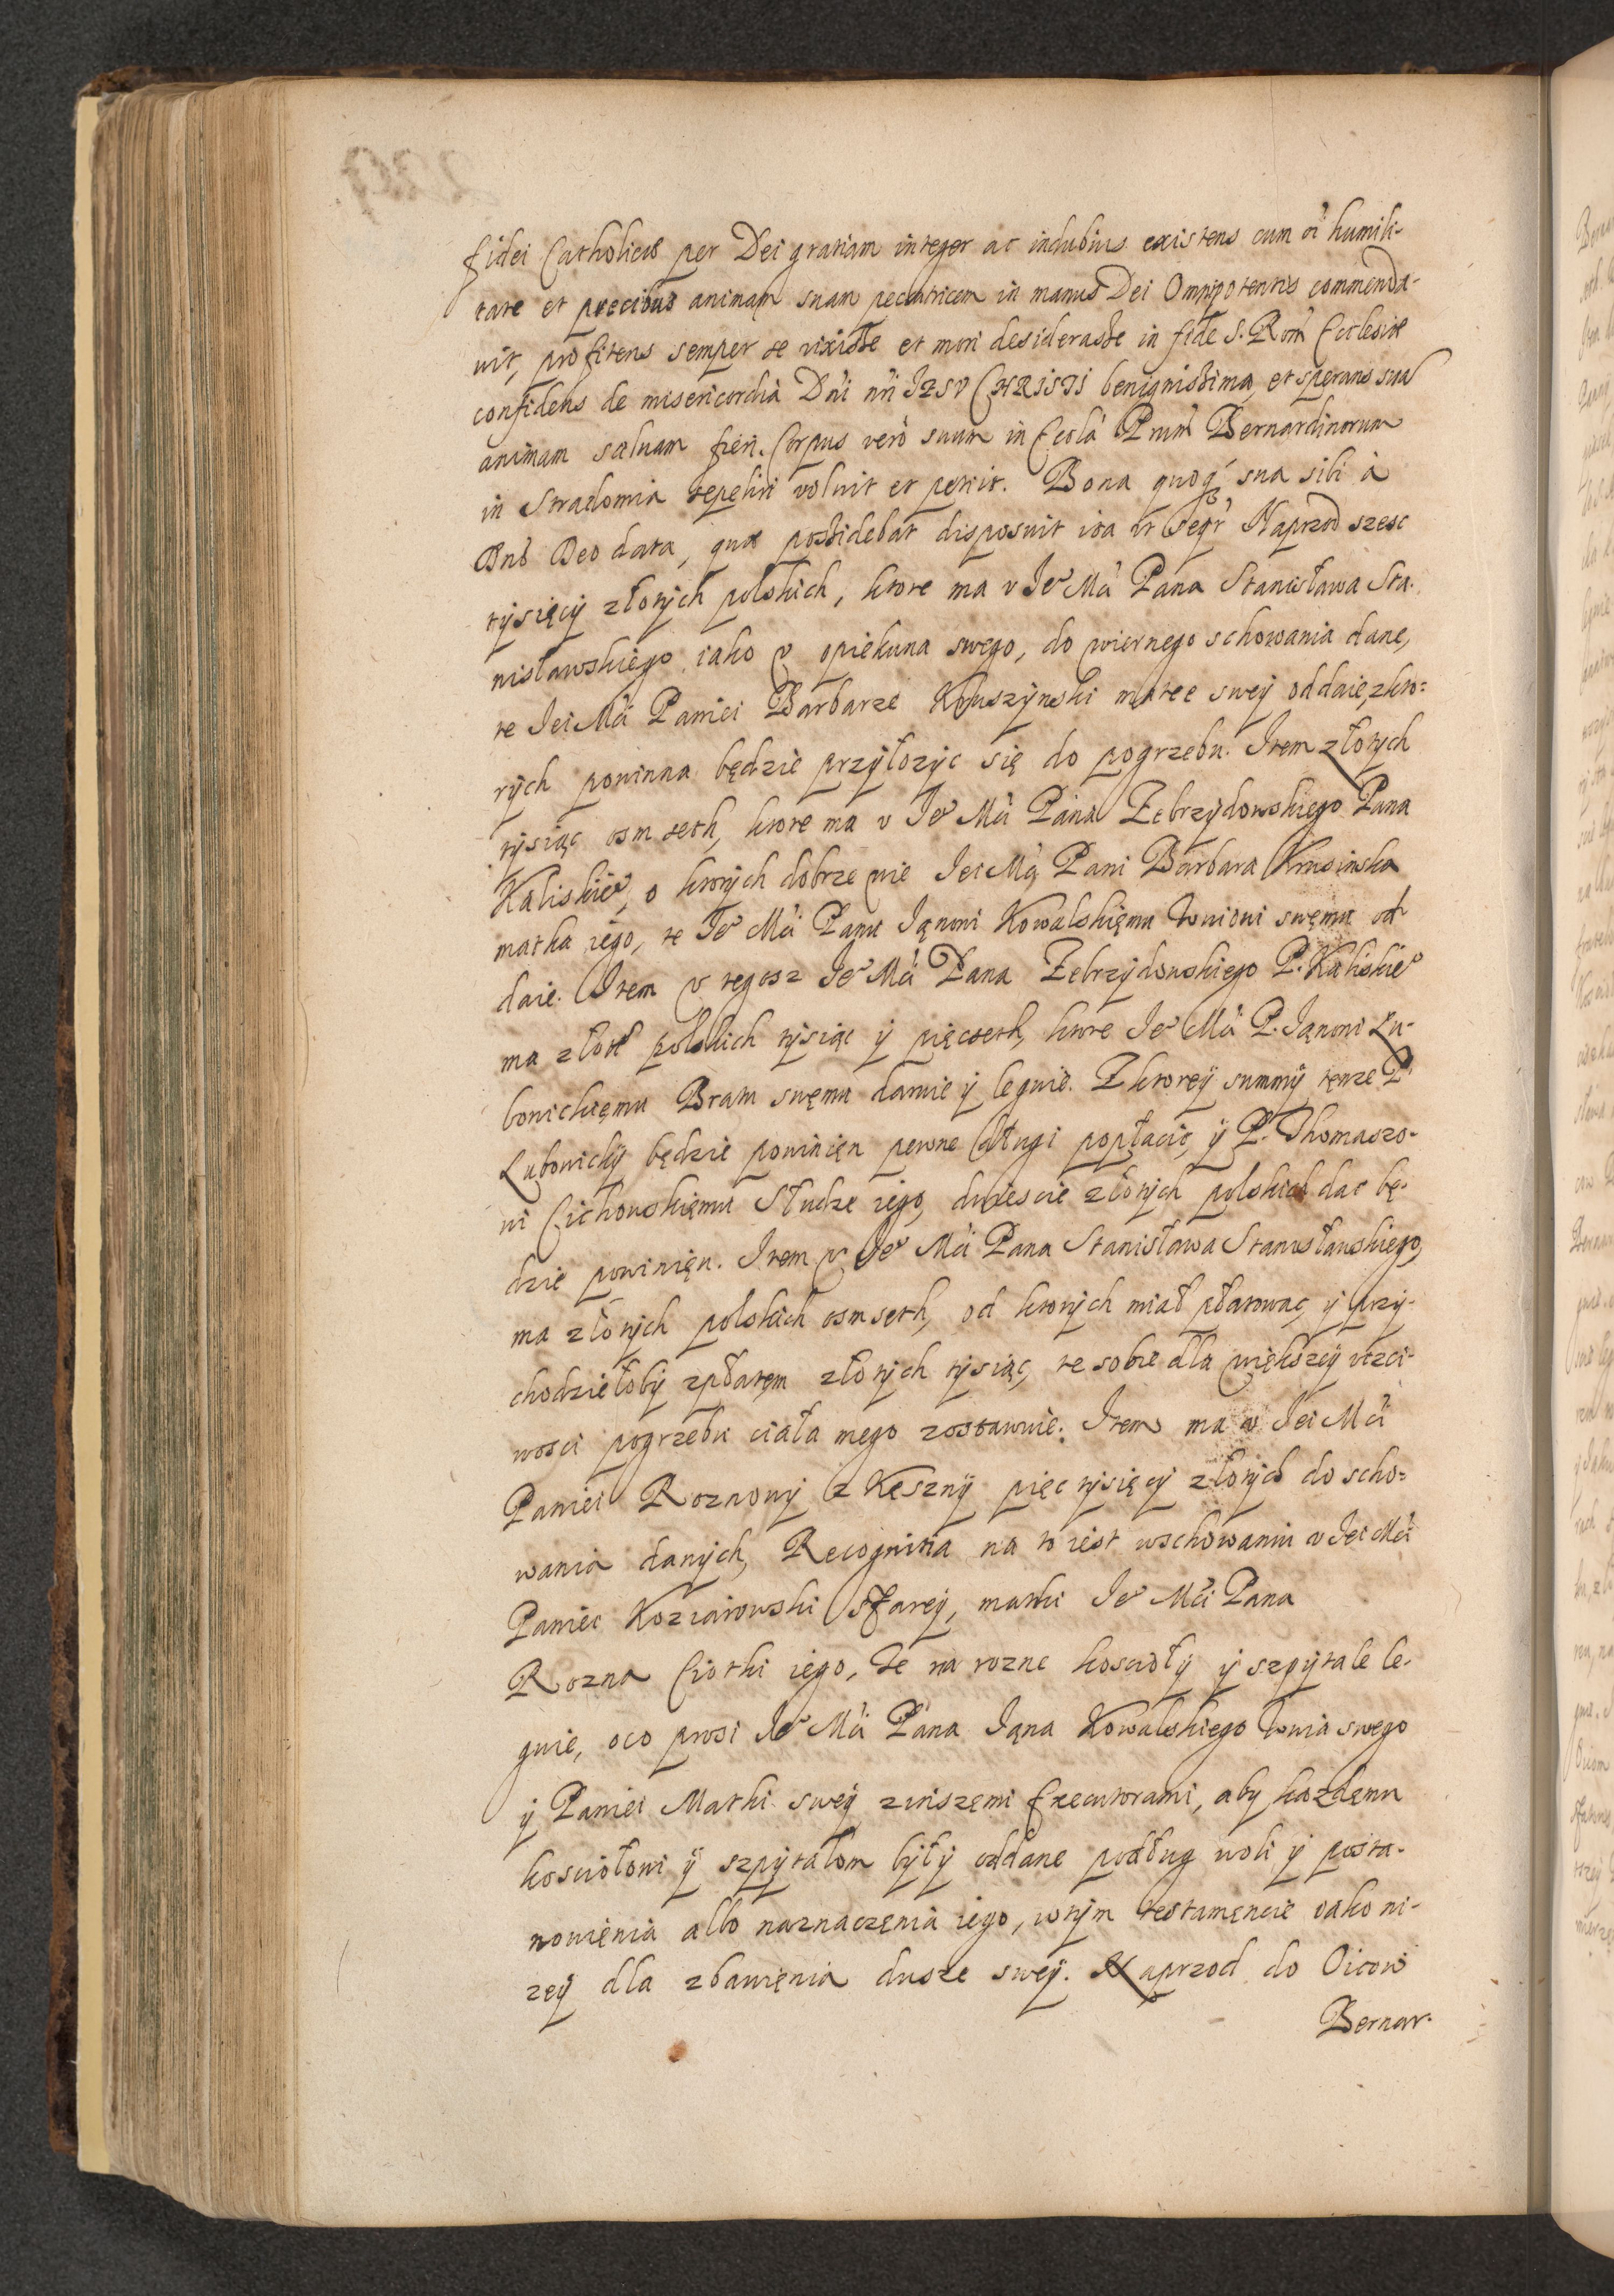 fidei Catholicæ per Dei gratiam integer ac indubius existens cum oi humili-
tate et precibus animam suam peccatricem in manus Dei Omnipotentis commenda-
uit, profitens semper se vixisse et mori desiderasse in fide S. Rom Ecclesiæ
confidens de misericordia Dni nri IESV CHRISTI benignissima, et sperans sua
animam saluam fieri. Corpus verò suum in Eccla Prum Bernardinorum
in Stradomia sepeliri voluit et petiit. Bona quoq sua sibi à
Dno Deo data, quæ possidebat disposuit ita vt seqr Naprzod szesc
tysięcy złotych polskich, ktore ma v Ie° Mci Pana Stanisława Sta-
nisławskiego iako v opiekuna swego, do wiernego schowania dane,
te Iei Mci Paniei Barbarze matce swey oddaie, z kto-
rych powinna będzie przyłozyc się do pogrzebu. Item złotych
tysiąc osm seth, ktore ma v Ie° Mci Pana Zebrzydowskiego Pana
Kaliskie°, o ktorych dobrze wie Iei Mć Pani Barbara
matka iego, te Ie° Mci Panu Ianowi Kowalskięmu Wuiowi swęmu od-
daie. Item v tegosz Ie° Mci Pana Zebrzydowskiego P. Kaliskie°
ma złot polskich tysiąc y pięcseth, ktore Ie° Mci P. Ianowi Lu-
bowickięmu Bratu swęmu daruie y leguie. Z ktorey summy tenze P.
Lubowicky będzie powinięn pewne długi popłacic, y P. Thomaszo-
wi Cichowskięmu Słudze iego, dwiescie złotych polskich dac bę-
dzie powinięn. Item v Ie° Mci Pana Stanisława Stanisławskiego,
ma złotych polskich osmseth, od ktorych miał płatowac, y przy-
chodziełoby zpłatęm złotych tysiąc, te sobie dla większey vczci-
wosci pogrzebu ciała mego zostawuie. Item ma v Iei Mci
Paniei Roznowy z pięc tysięcy złotych do scho-
wania danych, Recognitia na to iest wschowaniu v Iei Mci
Paniei Starey, matki Ie° Mci Pana
Rozna Ciotki iego, te na rozne koscioły y szpytale le-
guie, oco prosi Ie° Mci Pana Iana Kowalskiego Wuia swego
y Paniei Matki swey zinszęmi Executorami, aby kazdęmu
kosciołowi y szpytalom były oddane podług woli y posta-
nowięnia albo naznaczęnia iego, wtym testamęncie iako ni-
zey dla zbawięnia dusze swey. Naprzod do Oicow
Bernar-